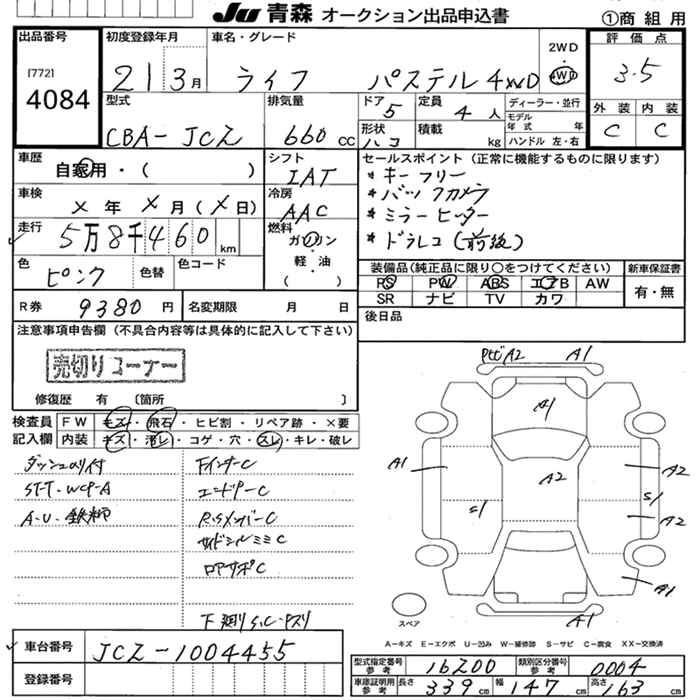 JU 青森 オークション出品申込書
①商組用
出品番号
[772]
4084
初度登録年月
21 3月
車名・グレード
ライフ パステル 4WD
2WD
4WD
評価点
3.5
外装 内装
C C
型式
CBA-JCZ
排気量
660cc
ドア
5
定員
4人
形状
ハコ
積載
kg
ディーラー・並行
モデル
年式 年
ハンドル 左・右
車歴
自家用・( )
シフト
IAT
セールスポイント(正常に機能するものに限ります)
*キーフリー
*バックカメラ
*ミラーヒーター
*ドラレコ(前後)
車検
X年 X月(X日)
冷房
AAC
走行
5万8千460km
燃料
ガソリン
軽・油
( )
色
ピンク
色替
色コード
装備品(純正品に限り○をつけてください)
PS PW ABS エアB AW
SR ナビ TV カワ
新車保証書
有・無
R券
9380円
名変期限 月 日
後日品
注意事項申告欄(不具合内容等は具体的に記入して下さい)
売切りコーナー
修復歴 有 〔箇所 〕
検査員
記入欄
FW キズ・飛石・ヒビ割・リペア跡・×要
内装 キズ・汚レ・コゲ・穴・スレ・キレ・破レ
ダッシュのり付
ST-T・WCP-A
A-U・鉄柿
FインナーC
エンドPーC
RrSメンバーC
サイドシルミミC
ロアサポC
下廻りS.C・サスリ
A2 A1
A1
A1
A2
A2
S1
S1
A2
A1
A1
スペア
A-キズ E-エクボ U-凹み W-補修跡 S-サビ C-腐食 XX-交換済
車台番号
JCZ-1004455
登録番号
型式指定番号
参考
16200
類別区分番号
参考
0004
車庫証明用
参考
長さ
339cm
幅
147cm
高さ
163cm